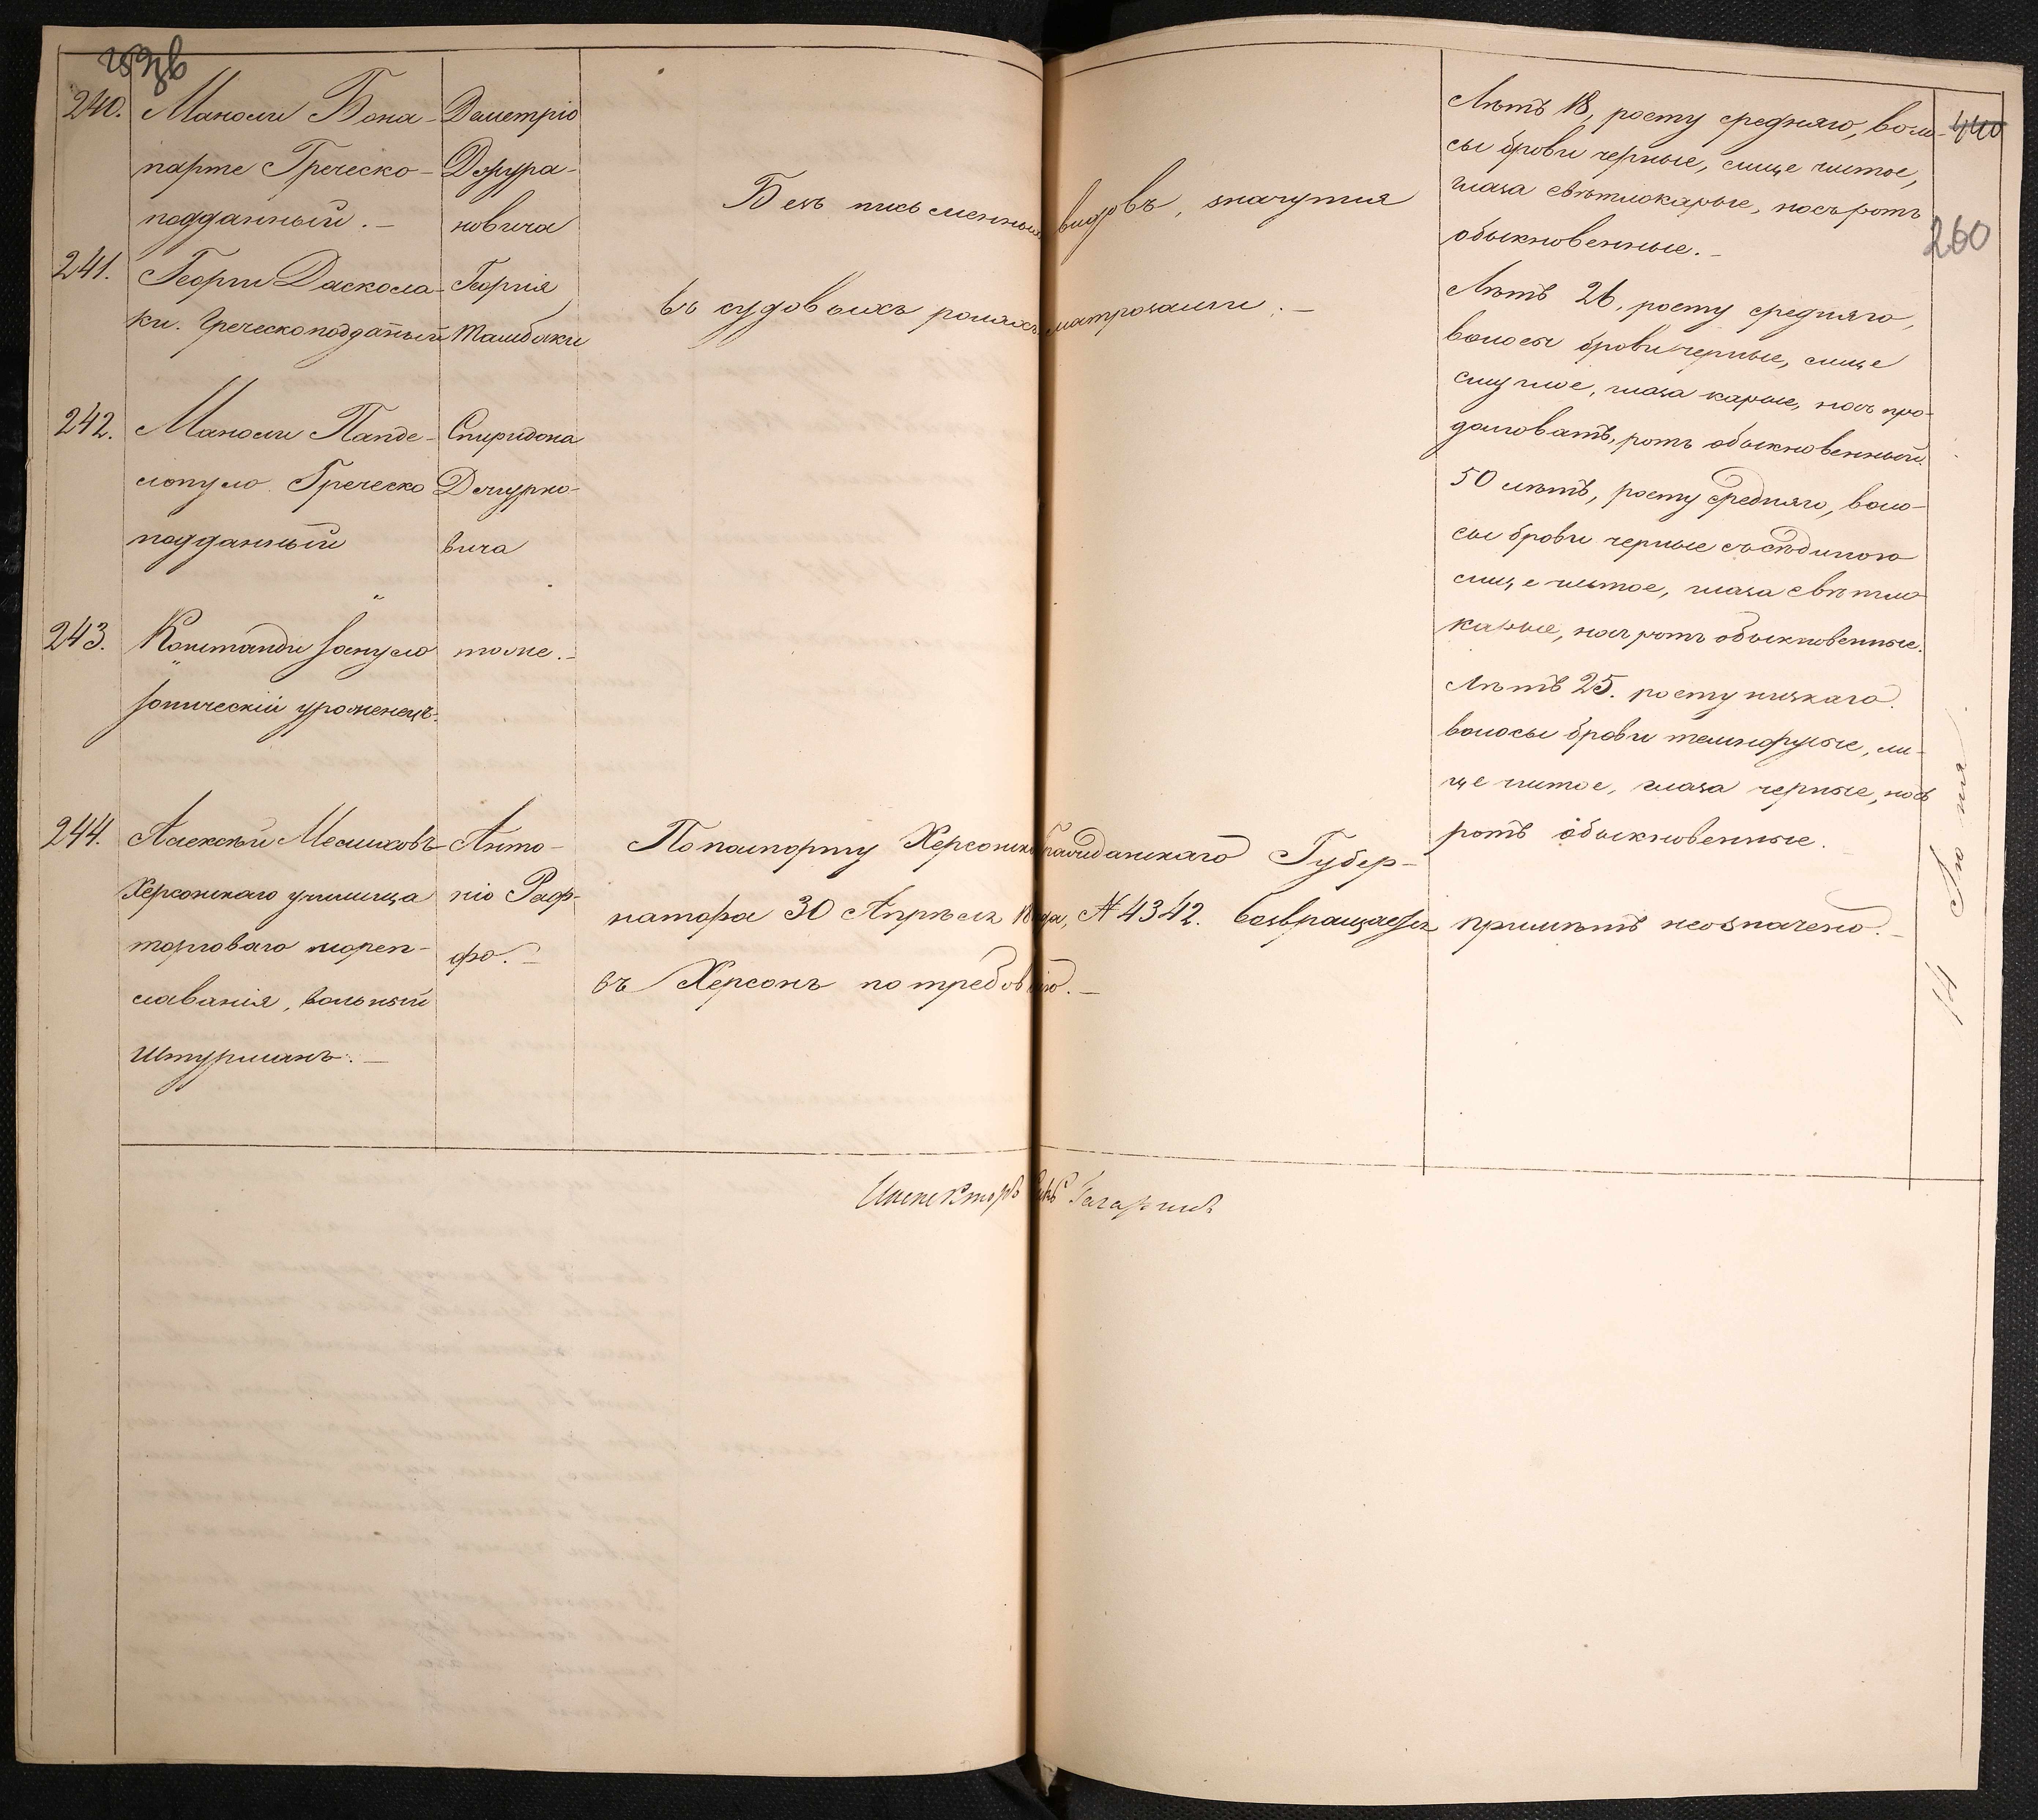 240.
Маноли Бона-
парте Греческо-
подданный. –
Деметріо
Джура-
новича
Безъ письменныхъ видовъ, значутся
въ судовыхъ роляхъ матрозами. –
Лѣтъ 18, росту средняго, воло-
сы брови черные, лице чистое,
глаза свѣтлокарые, носъ ротъ
обыкновенные. –
440
260
241.
Георги Даскола-
ки. Греческоподданый
Георгія
Лѣтъ 26, росту средняго,
волосы брови черные, лице
смуглое, глаза карые, носъ про-
долговатъ, ротъ обыкновенный.
242.
Маноли Панде-
лопуло Греческо
подданный
Спиридона
вича
50 лѣтъ, росту средняго, воло-
сы брови черные съ сѣдиною
лице чистое, глаза свѣтло
карые, носъ ротъ обыкновенные.
243.
Констанди Іопуло
Іоническій уроженецъ.
тоже. –
Лѣтъ 25. росту низкаго
волосы брови темнорусые, ли-
це чистое, глаза черные, носъ
ротъ обыкновенные.
244.
Алексѣй Мелиховъ
Херсонскаго училища
торговаго мореп-
лаванія, вольный
штурманъ. –
Анто-
ніо Раф-
фо. –
По паспорту Херсонск гражданскаго Губер-
натора 30 Апрѣля 18 года, № 4342. возвращается
въ Херсонъ по требов нію. –
примѣтъ неозначено. –
14 Іюня
Инспекторъ Князь Гагаринъ